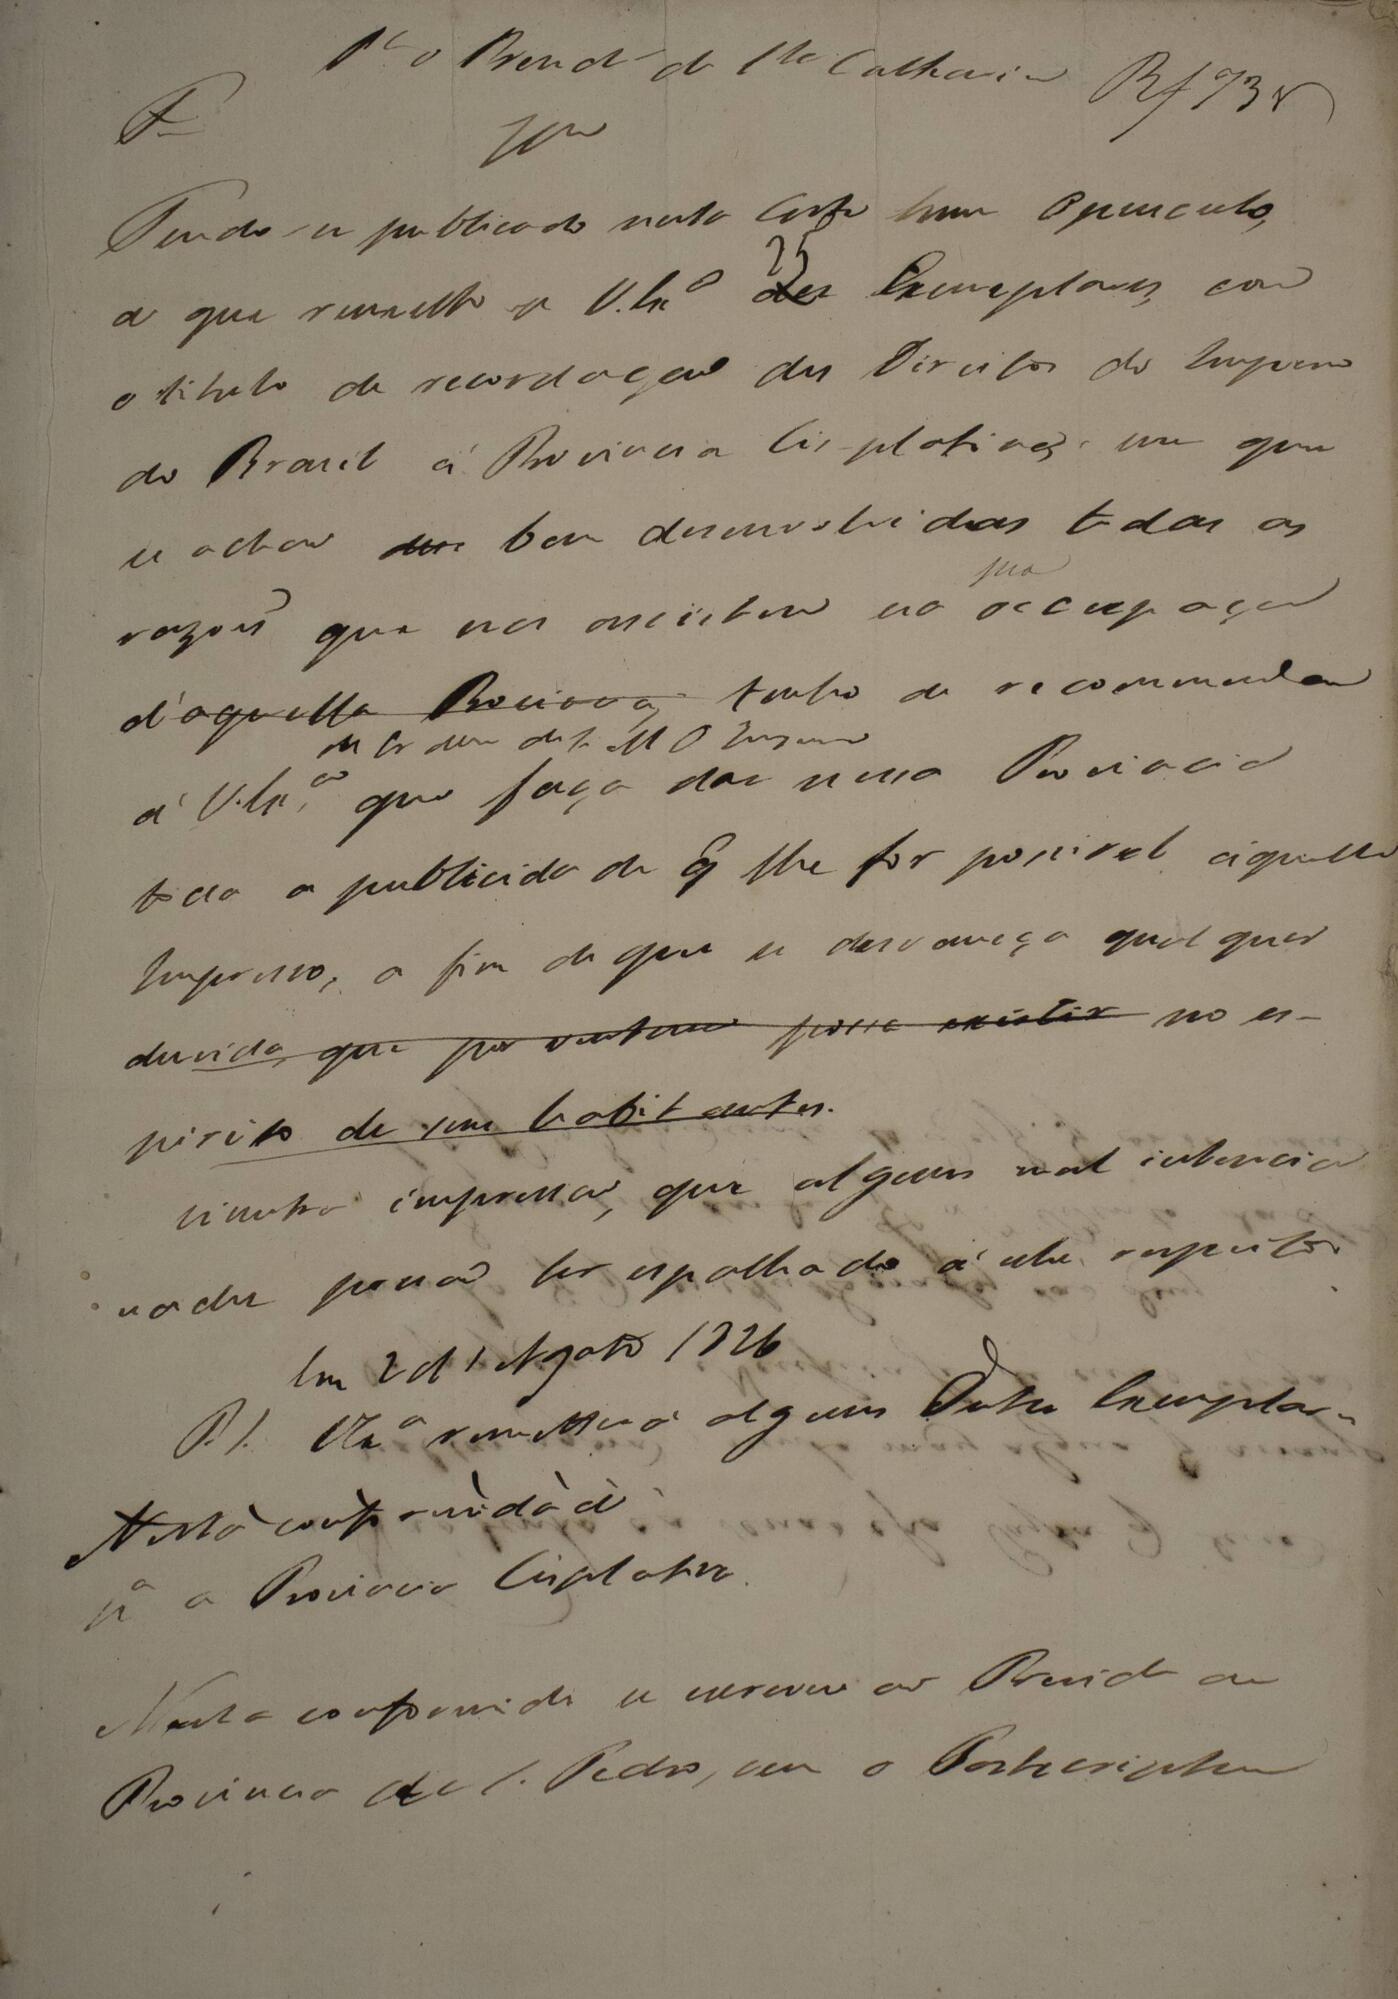 Pª o Presidte de Sta Catharina Rf 73 v
F
Tendo-se publicado nesta Corte hum Opusculo,
25
de que remetto a V. Exª dez Exemplares, com
o titulo de recordação dos Direitos do Imperio
do Brasil á Provincia Cis-platina, em que
se achão bem desenvolvidas todas as
sua
razoẽs que nos assistem na occupação
d'aquella Provincia, tenho de recommendar
de Ordem de S. M. O Imperador
á V. Exª que faça dar nessa Provincia
toda a publicidade q̃ lhe for possivel áquelle
Impresso, a fim de que se desvaneça qualquer
duvida que por ventura possa existir no es-
pirito de seus habitantes.
sinistra impressão, que alguns mal intencio
nados possão ter espalhado á este respeito.
Em 2 d'Agosto 1826
P. S. V Exª remetterá alguns Destes Exemplares
pª a Provincia Cisplatina.
Nesta conformide se escreveu ao Preside da
Provincia de S. Pedro, com o Postscriptum